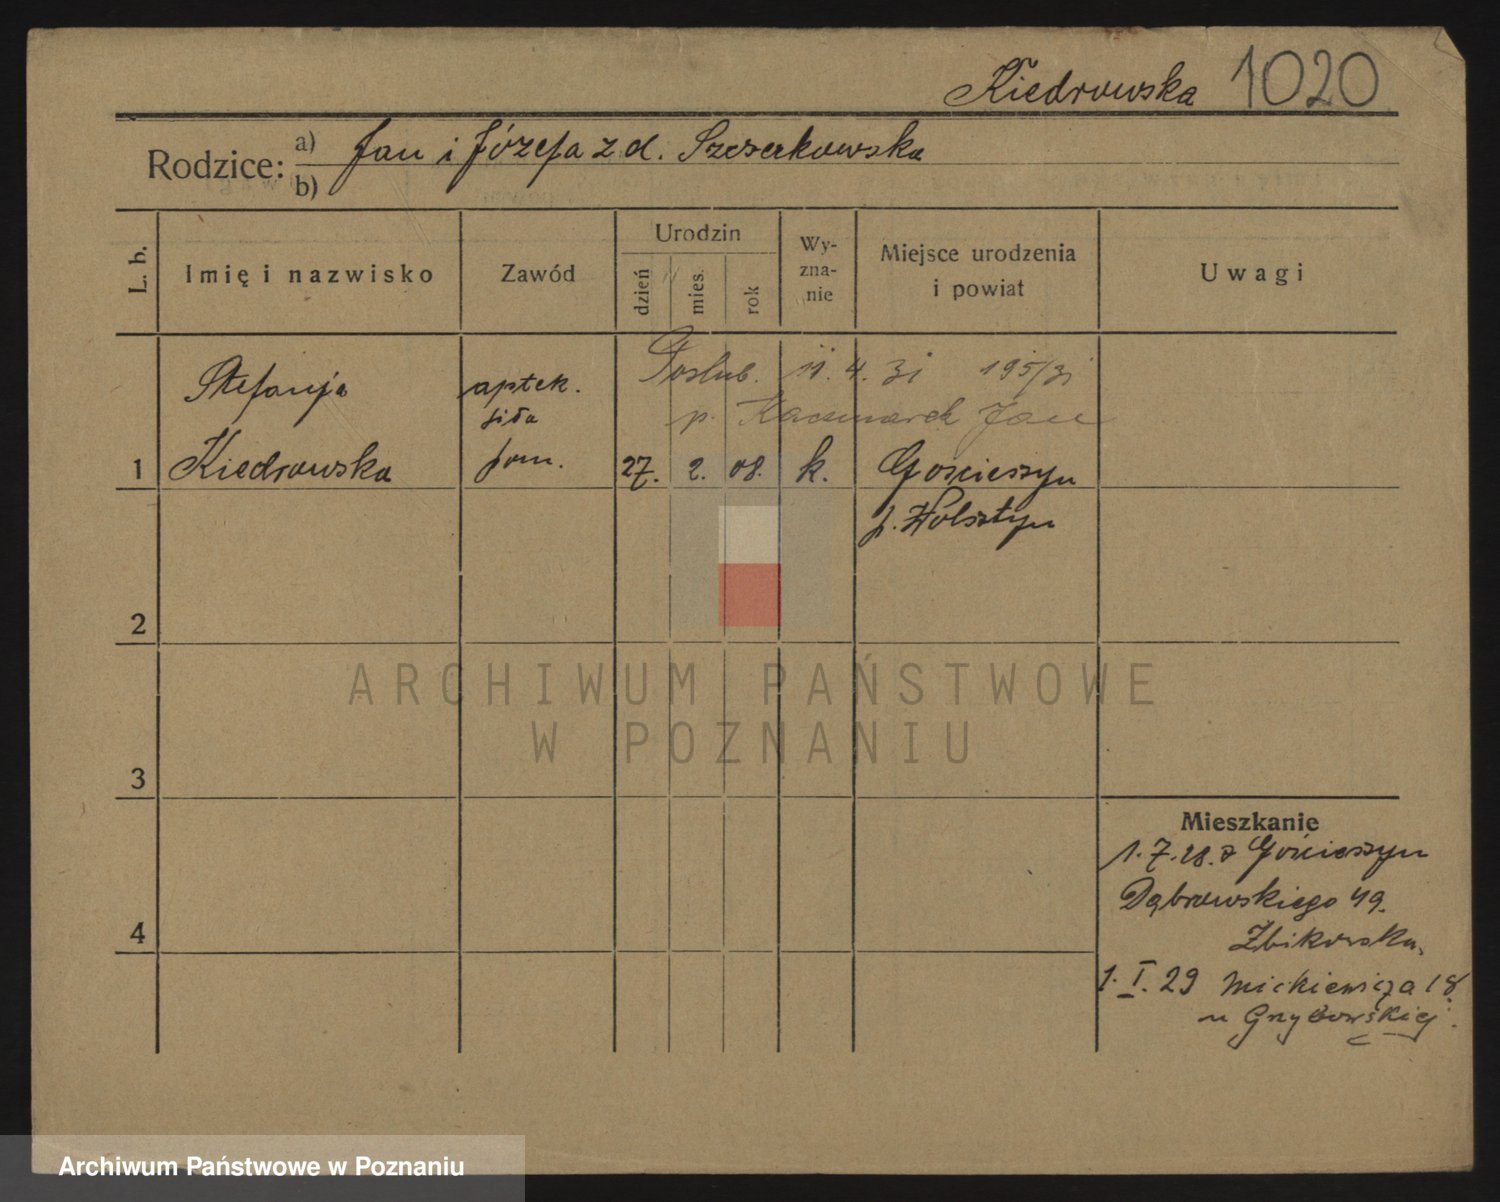 Kiedrowska 1020
Rodzice:
a) Jan i Józefa z d.
b)
L. b.
Imię i nazwisko
Zawód
Urodzin
dzień
mies.
rok
Wy-
zna-
nie
Miejsce urodzenia
i powiat
Uwagi
Poślub. 11. 4. 31 195/31
p. Kaczmarek Jan
Stefanja
aptek.
siła
1 Kiedrowska pom. 27. 2. 08. k. Gościeszyn
p. Wolsztyn
2
3
4
Mieszkanie
1.7.28. z Gościeszyn
Dąbrowskiego 49.
Żbikowska.
1.I.29 Mickiewicza 18
u Grzybowskiej.
ARCHIWUM PAŃSTWOWE
W POZNANIU
Archiwum Państwowe w Poznaniu